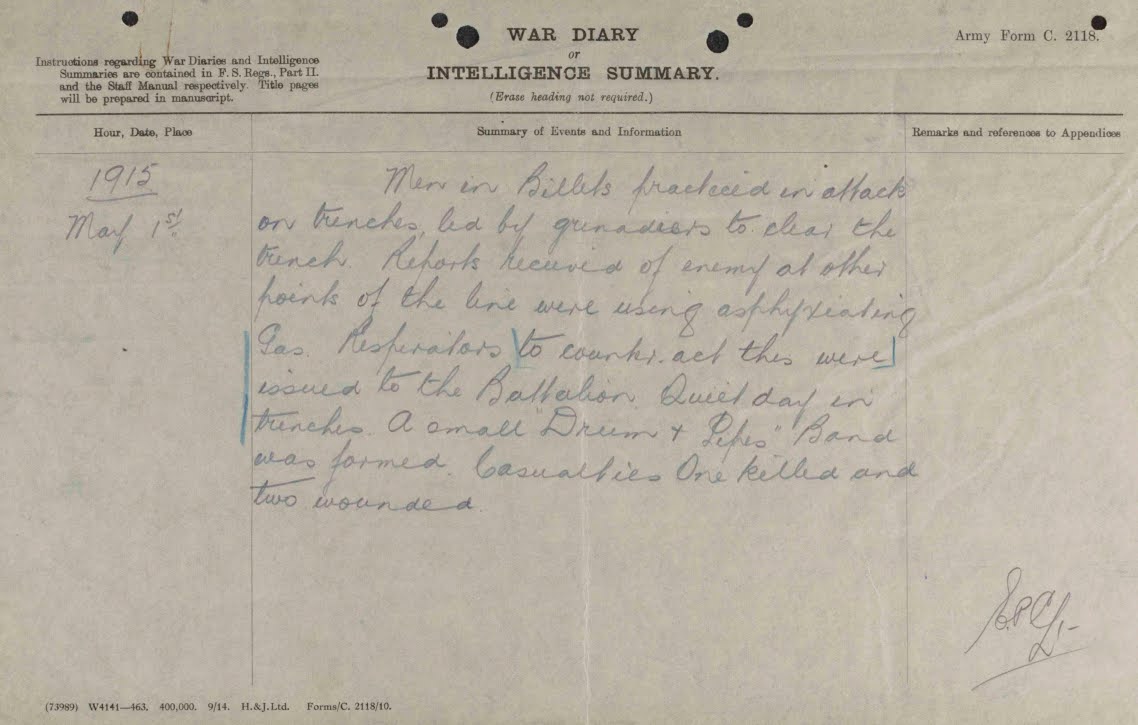 WAR DIARY
or
INTELLIGENCE SUMMARY.
(Erase heading not required.)
Army Form C. 2118.
Instructions regarding War Diaries and Intelligence
Summaries are contained in F. S. Regs., Part II.
and the Staff Manual respectively. Title pages
will be prepared in manuscript.
Hour, Date, Place
Summary of Events and Information
Remarks and references to Appendices
1915
May 1st.
Men in Billets practiced in attack
on trenches, led by grenadiers to clear the
trench. Reports received of enemy at other
points of the line were using asphyxiating
Gas. Respirators to counter.act this were
issued to the Battalion. Quiet day in
trenches. A small "Drum + Pipes" Band
was formed. Casualties One killed and
two wounded.
(73989) W4141—463. 400,000. 9/14. H.&J.Ltd. Forms/C. 2118/10.